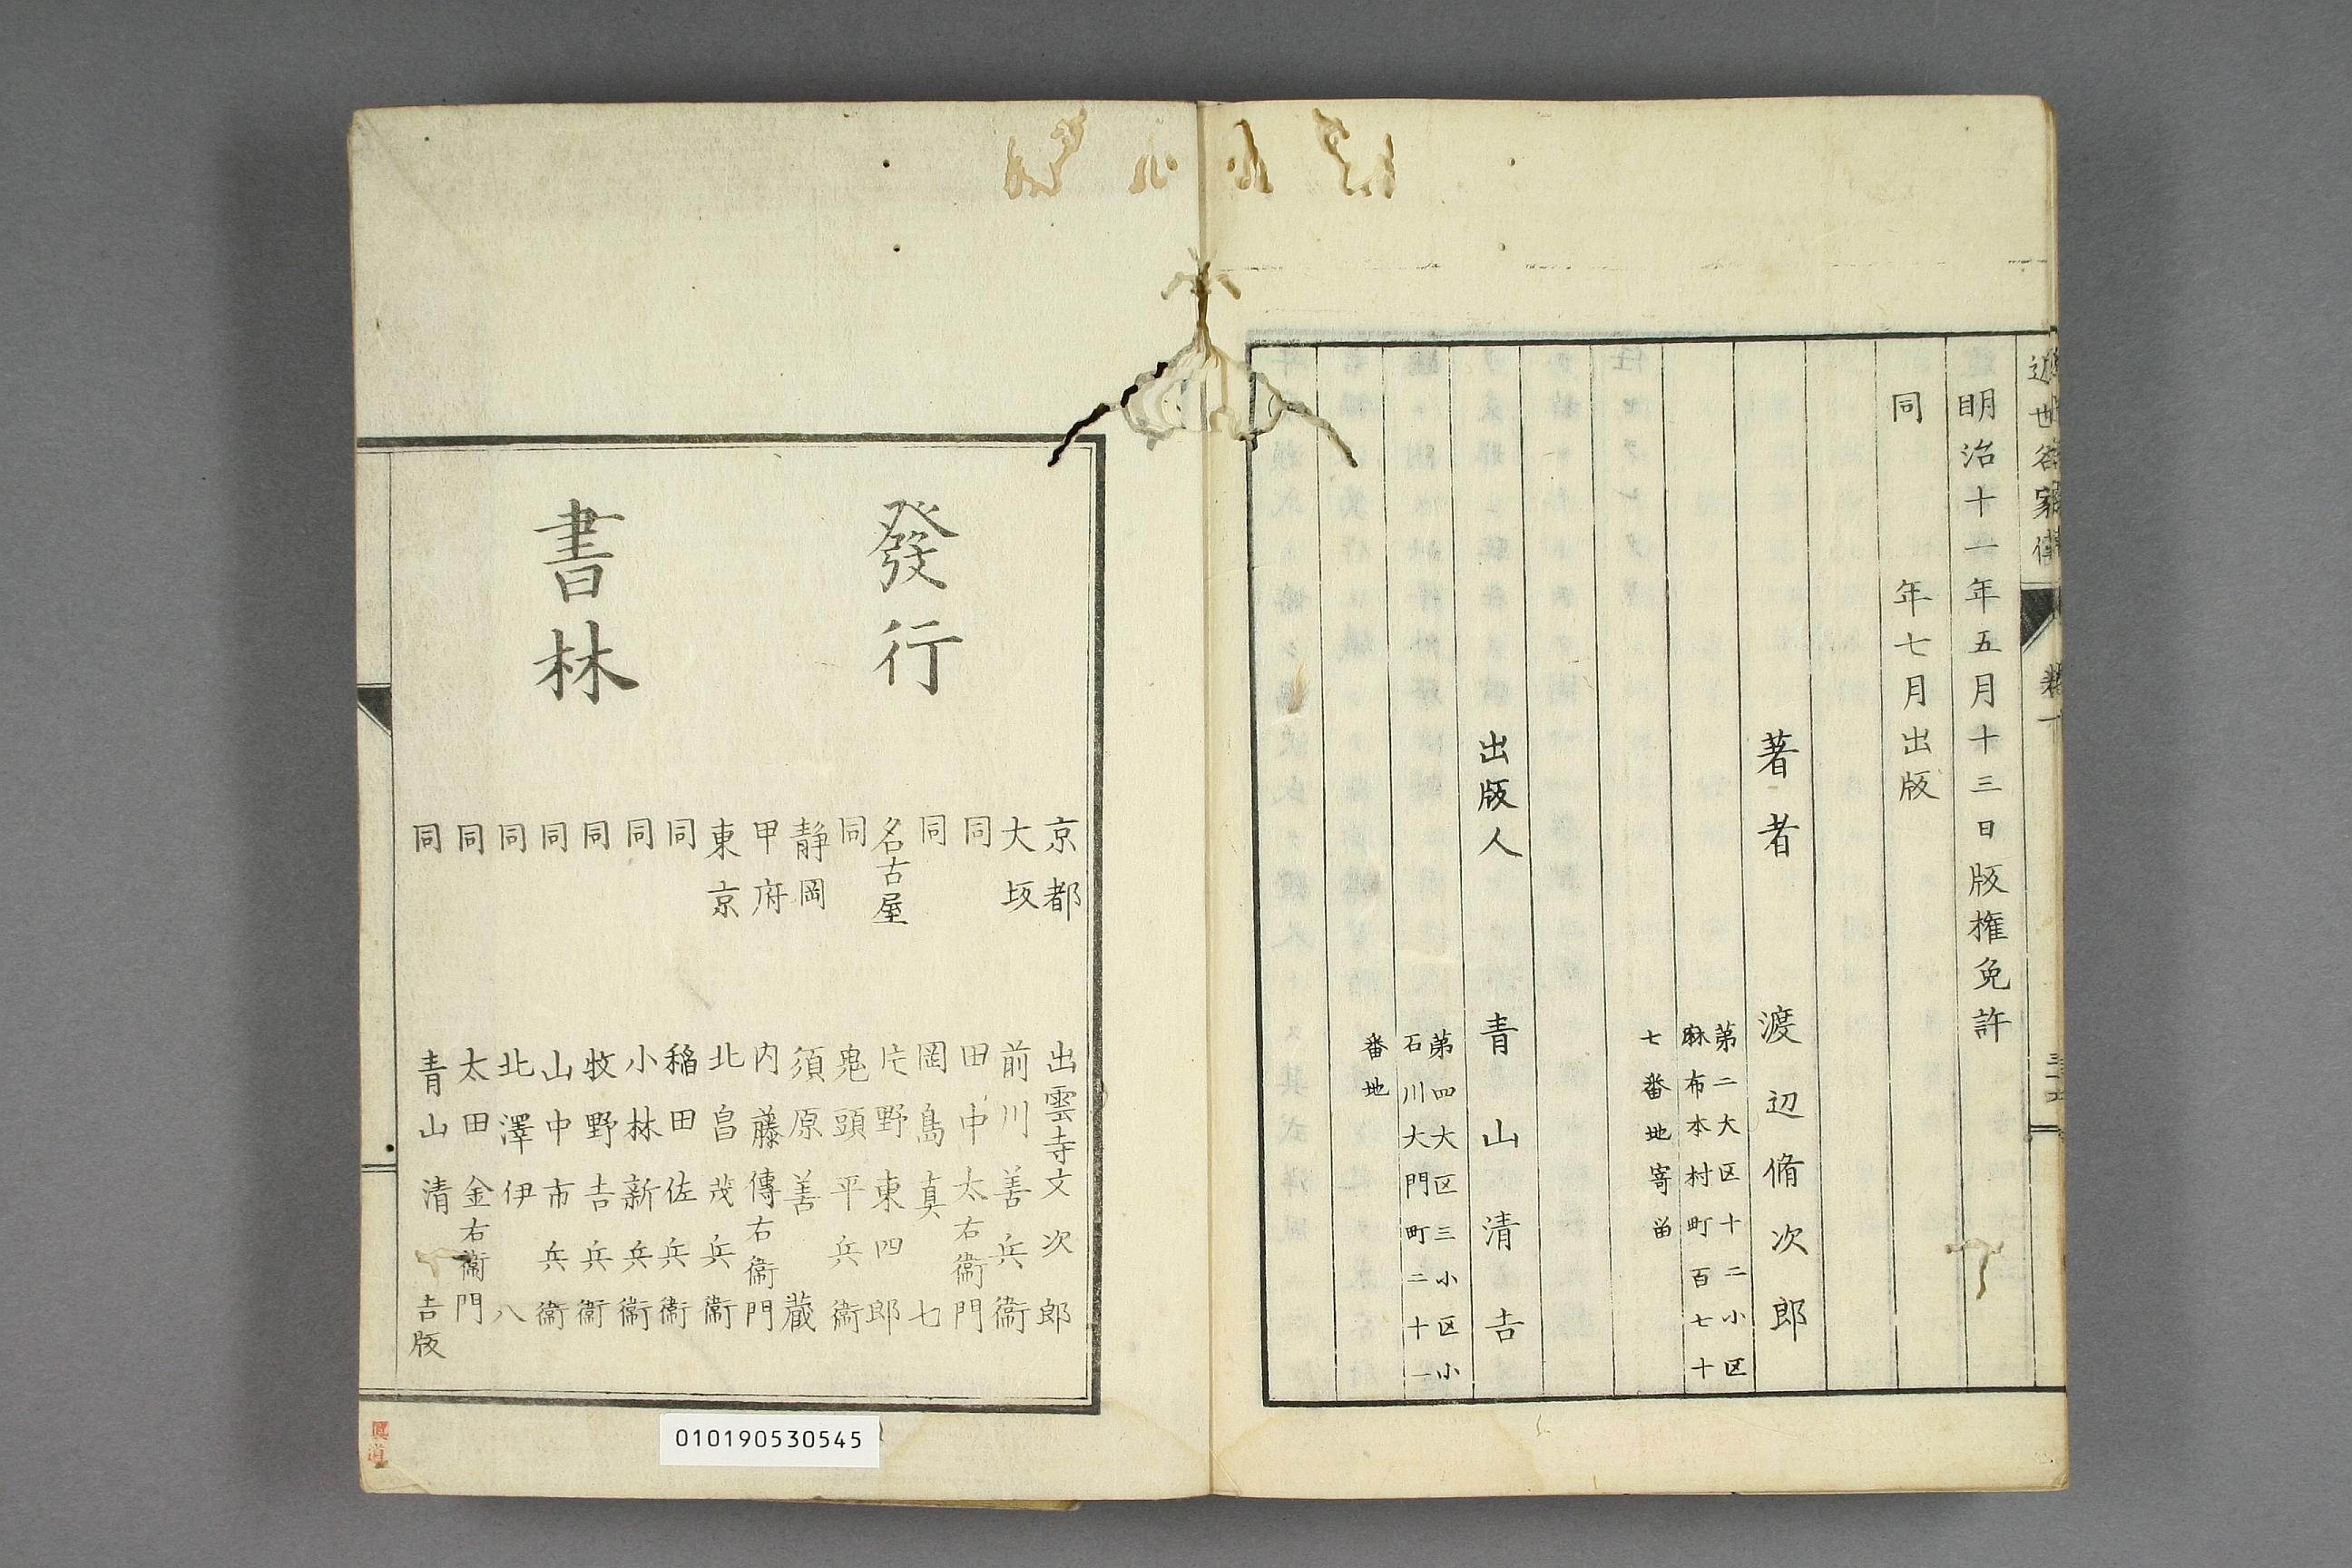 明治十一年五月十三日版権免許
同 年七月出版
著者 渡辺脩次郎
第二大区十二小区
麻布本村町百七十
七番地寄留
出版人 青山清吉
第四大区三小区小
石川大門町二十一
番地
發行
書林
京都 出雲寺文次郎
大坂 前川善兵衞
同 田中太右衞門
同 岡島真七
名古屋 片野東四郎
同 鬼頭平兵衞
静岡 須原善藏
甲府 内藤傳右衞門
東京 北畠茂兵衞
同 稲田佐兵衞
同 小林新兵衞
同 牧野吉兵衞
同 山中市兵衞
同 北澤伊八
同 太田金右衞門
同 青山清吉版
010190530545